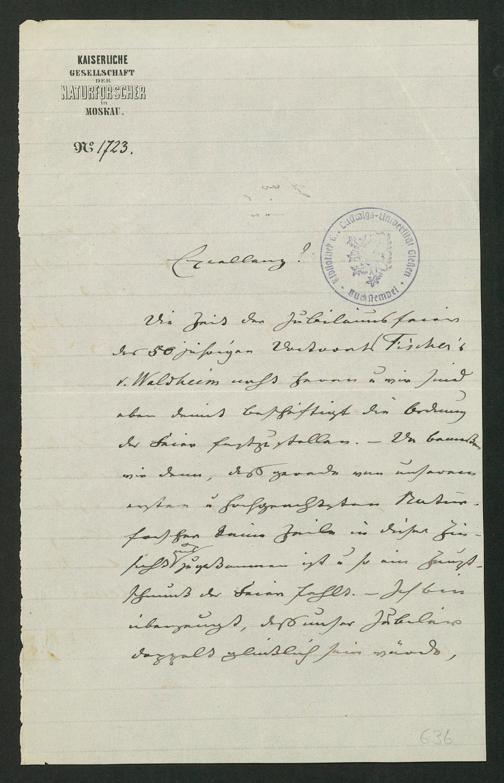 KAISERLICHE
GESELLSCHAFT
DER
NATURFORSCHER
in
MOSKAU.
No 1723.
Bibliothek d. Ludwigs-Universität Gießen
Buchstempel
Excellenz!
Die Zeit der Jubiläumsfeier
des 50 jährigen Doctorats Fischer's
v. Waldheim naht heran u wir sind
eben damit beschäftigt die Ordnung
der Feier festzustellen. — Da bemerken
wir denn, daß gerade von unserem
ersten u hochgeachteten Natur-
forscher keine Zeile in dieser Hin-
sicht zugekommen ist u so ein Haupt-
schmuck der Feier fehlt. — Ich bin
überzeugt, daß unser Jubilar
doppelt glücklich sein würde,
636